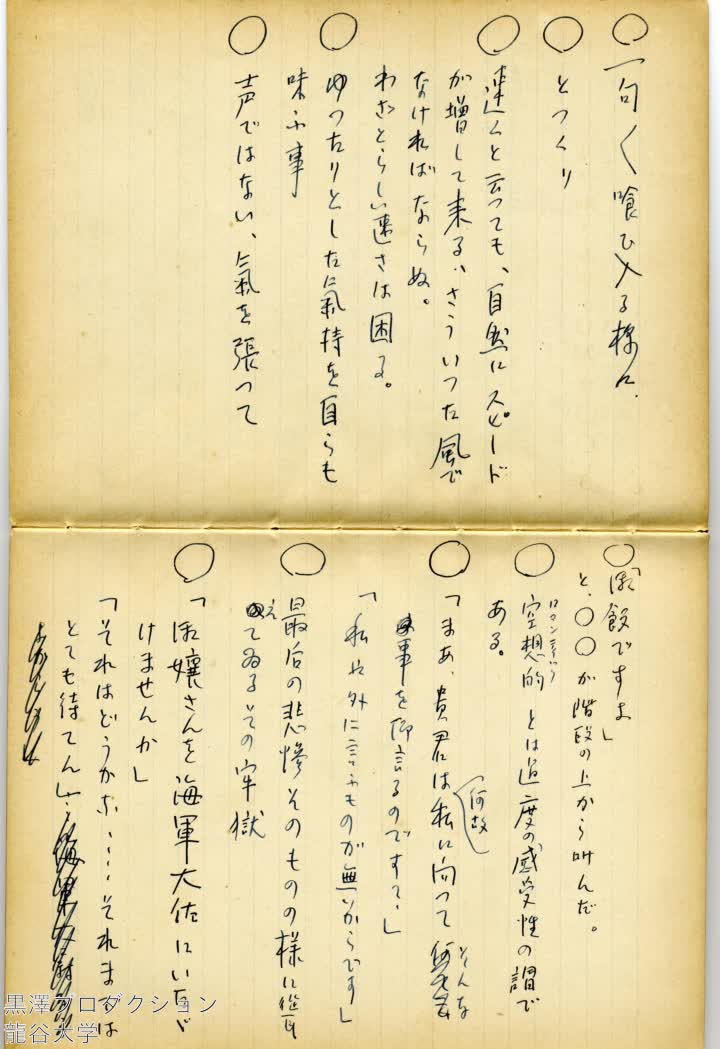 ○一句く喰ひ入る様に、
○とつくり
○速くと云つても、自然にスピード
が増して来る、さういつた風で
なければならぬ。
わざとらしい速さは困る。
○ゆつたりとした氣持を自らも
味ふ事
○声ではない、氣を張つて
○「御飯ですよ」
と、〇〇が階段の上から叫んだ。
○空想的とは過度の感受性の謂で
ある。
○「まあ、貴君は私に向つて何故そんな
事を仰言るのですて、」
「私や外に言ふものが無いからです」
○最后の悲惨そのものの様に
てゐるその牢獄
○「お嬢さんを海軍大佐にいただ
けませんか」
「それはどうかな、…それまでは
とても待てん」
黒澤プロダクション
龍谷大学